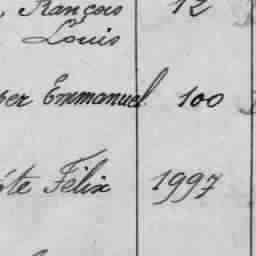 François 12
Louis
per Emmanuel 100
te Félix 1997